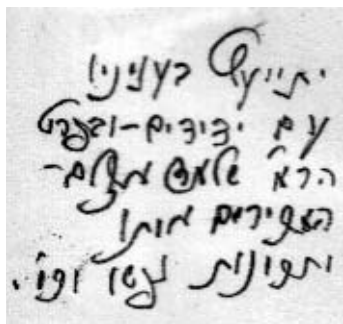 יתייעץ בעניניו
עם ידידים-ובפרט
הר"מ שלמד אצלם-
המכירים אותו
ותכונות נפשו וכו'.